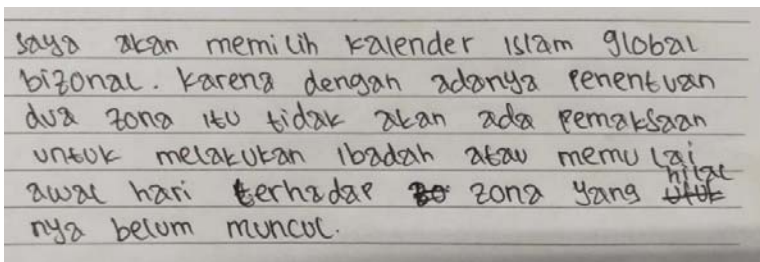 saya akan memilih kalender islam global
bizonal. karena dengan adanya penentuan
dua zona itu tidak akan ada pemaksaan
untuk melakukan ibadah atau memulai
awal hari terhadap zona yang hilal
nya belum muncul.